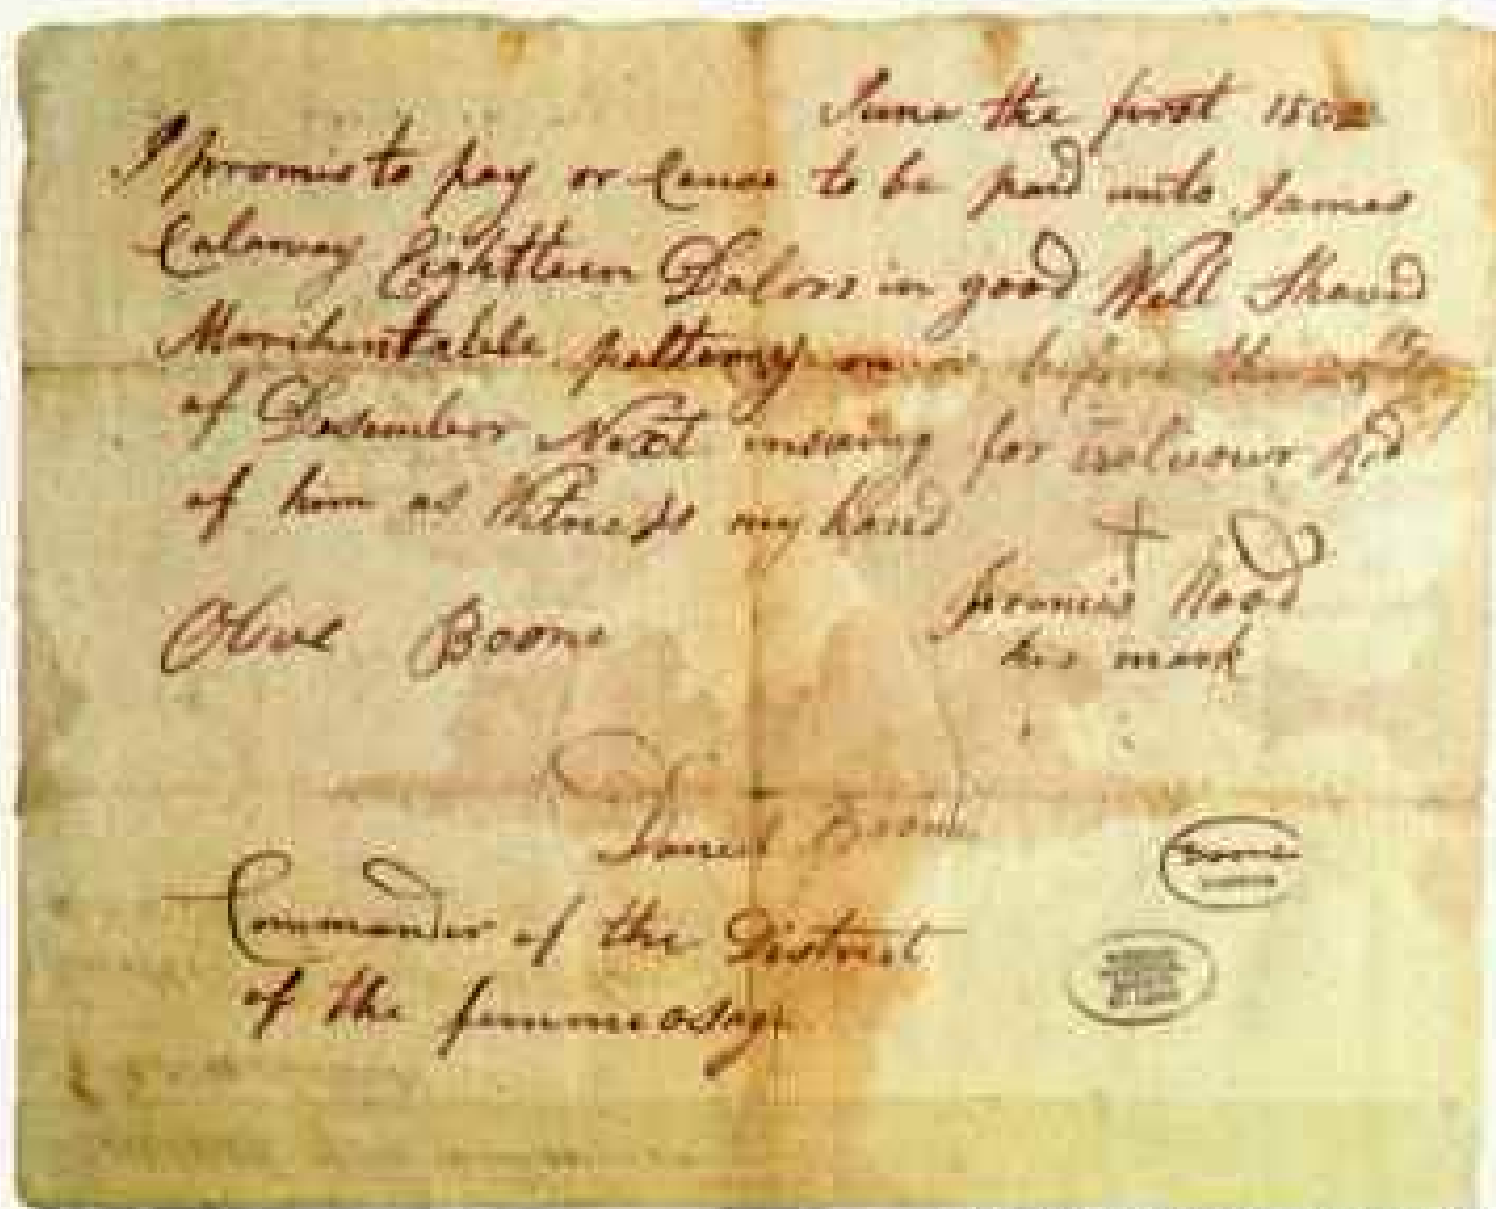 June the first 180
I promis to pay or Cause to be paid unto James
Calaway Eightteen Dolors in good Well Shaved
Marchentable peltery on or before the
of Desember Next insewing for
of him as Witness my hand
Olive Boone
Francis Wood
his mark
Daniel Boone
Commander of the District
of the femmeosage
Boone